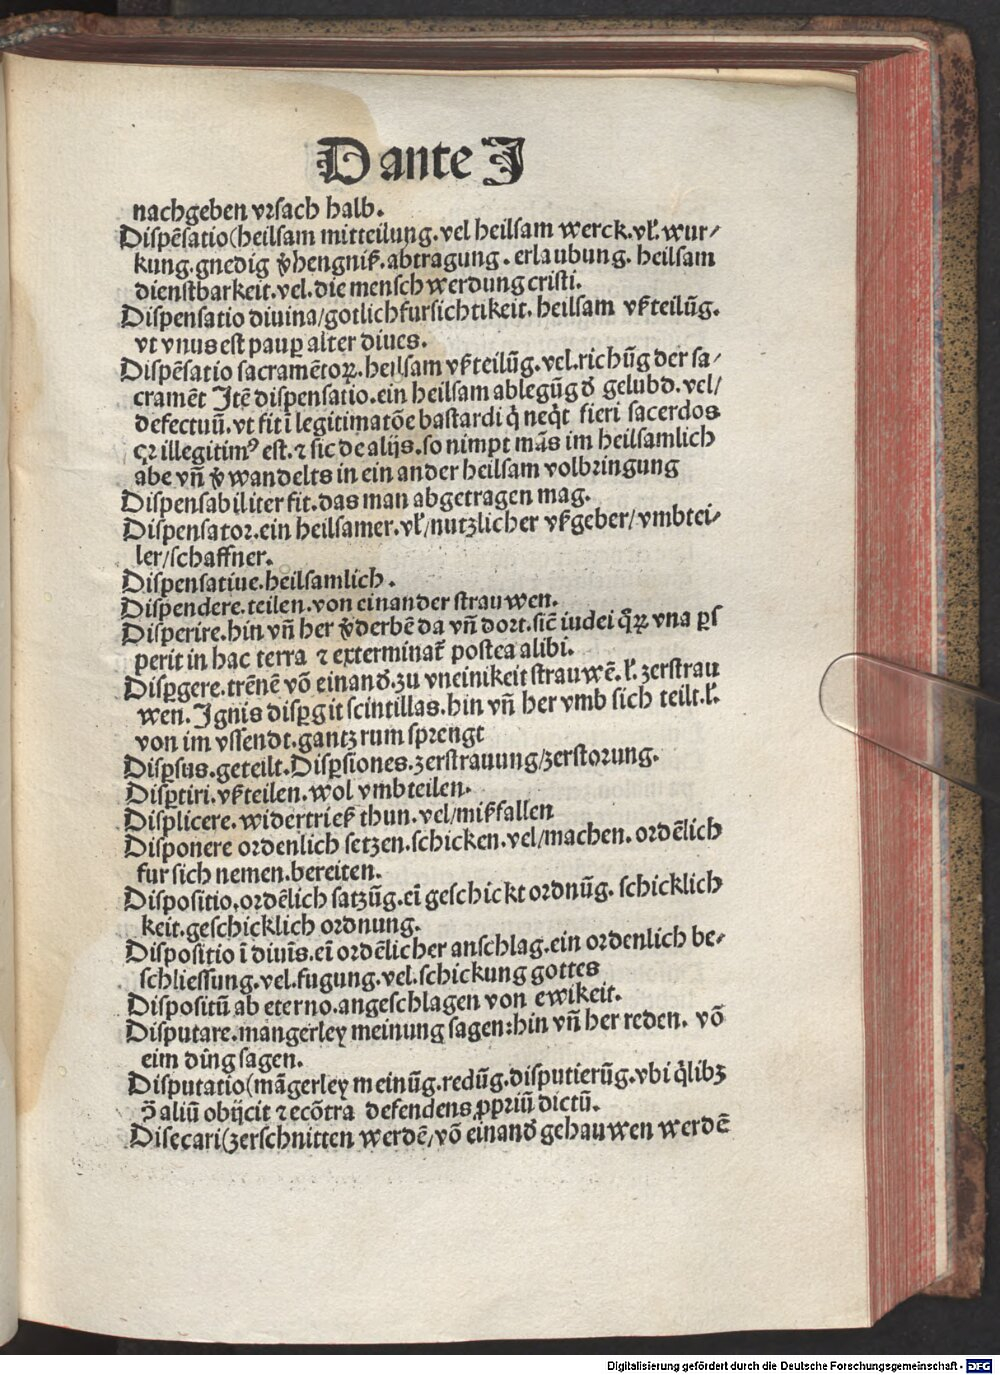 Dante I
nachgeben vrsach halb.
Dispēsatio(heilsam mitteilung.vel heilsam werck.vł.wur/
kung.gnedig v̄hengniß.abtragung.erlaubung.heilsam
dienstbarkeit.vel.die menschwerdung cristi.
Dispensatio diuina/gotlichfursichtikeit.heilsam vßteilūg.
vt vnus est paup̱ alter diues.
Dispēsatio sacramētoꝝ.heilsam vßteilūg.vel.richūg der sa/
cramēt Itē dispensatio.ein heilsam ablegūg d̄ gelubd.vel/
defectuū.vt fit ī legitimatōe bastardi q̄ neq̄t fieri sacerdos
qꝛ illegitimꝰ est.⁊ sic de alijs.so nimpt mās im heilsamlich
abe vn̄ v̄wandelts in ein ander heilsam volbringung
Dispensabiliter fit.das man abgetragen mag.
Dispensator.ein heilsamer.vł/nutzlicher vßgeber/vmbtei/
ler/schaffner.
Dispensatiue.heilsamlich.
Dispendere.teilen.von einander strauwen.
Disperire.hin vn̄ her v̄derbē da vn̄ dort.sic̄ iudei q̄ꝝ vna ꝑs
perit in hac terra ⁊ exterminat̄ postea alibi.
Disꝑgere.trēnē vō einand̄.zu vneinikeit strauwē.ł.zerstrau
wen.Ignis disꝑgit scintillas.hin vn̄ her vmb sich teilt.ł.
von im vssendt.gantz rum sprengt
Disꝑsus.geteilt.Disꝑsiones.zerstrauung/zerstorung.
Disꝑtiri.vßteilen.wol vmbteilen.
Displicere.widertrieß thun.vel/mißfallen
Disponere ordenlich setzen.schicken.vel/machen.ordēlich
fur sich nemen.bereiten.
Dispositio.ordēlich satzūg.eī geschickt ordnūg.schicklich
keit.geschicklich ordnung.
Dispositio ī diuīs.eī ordēlicher anschlag.ein ordenlich be/
schliessung.vel.fugung.vel.schickung gottes
Dispositū ab eterno.angeschlagen von ewikeit.
Disputare.mangerley meinung sagen:hin vn̄ her reden.vō
eim ding sagen.
Disputatio(māgerley meinūg.redūg.disputierūg.vbi q̄libꝫ
ꝯ̄ aliū obijcit ⁊ ecōtra defendens ꝓpriū dictū.
Disecari(zerschnitten werdē/vō einand̄ gehauwen werdē
Digitalisierung gefördert durch die Deutsche Forschungsgemeinschaft - DFG